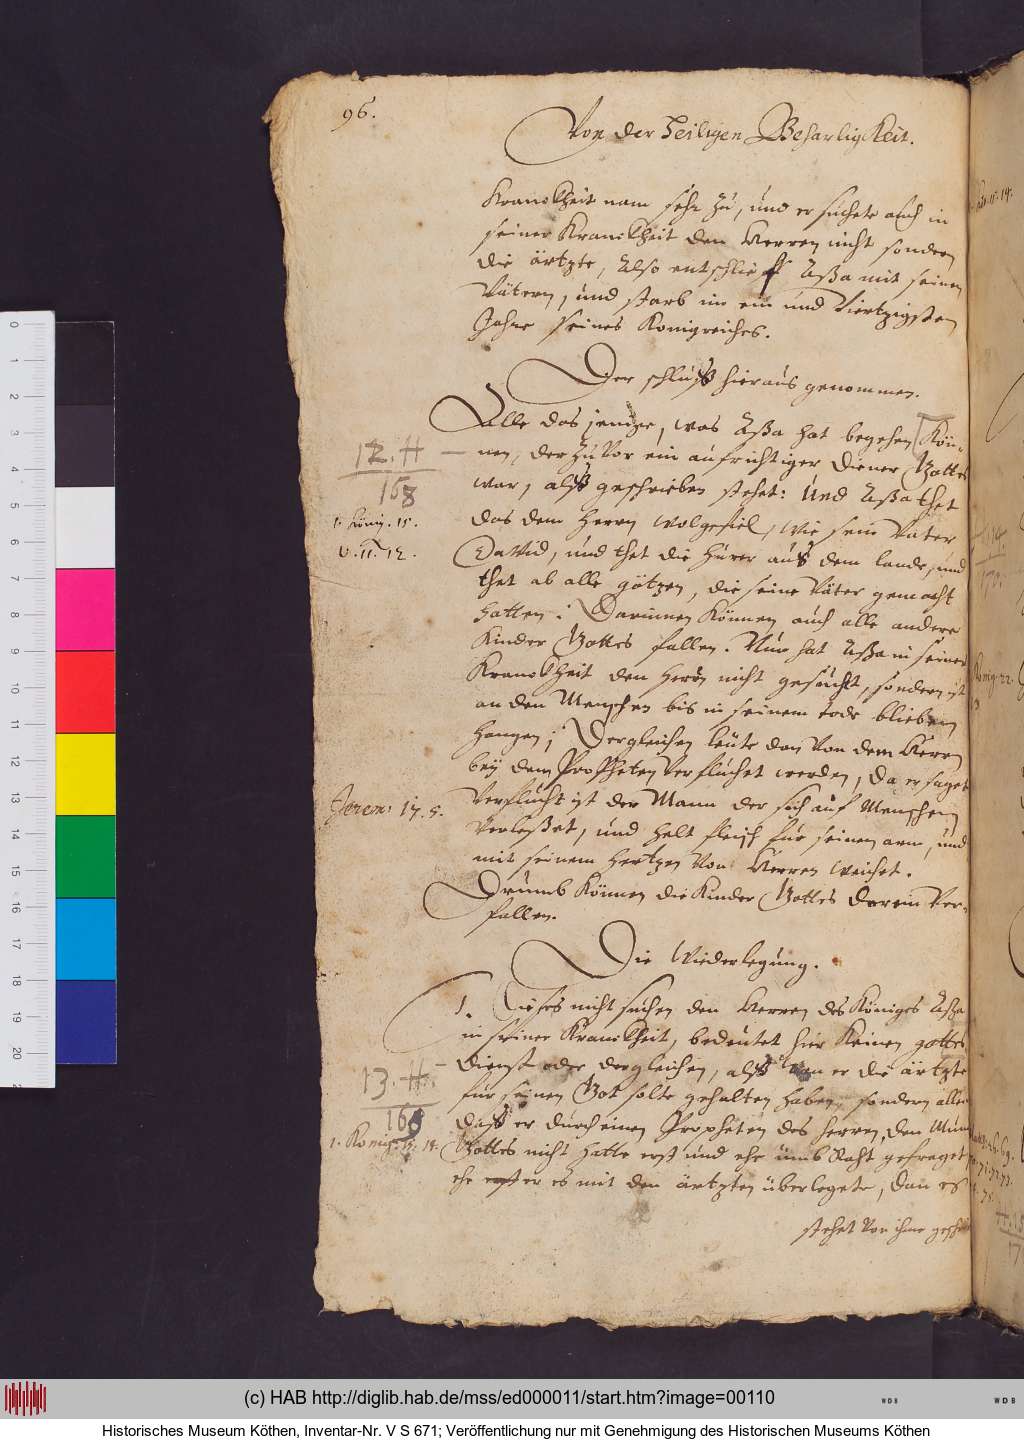 96.
Von der Heiligen Beharligkeit.
Kranckheit nam sehr zu, und er suchete auch in
seiner Kranckheit den Herren nicht sondern
die ärtzte, Also entschlieff Aßa mit seinen
Vätern, und starb im ein und Viertzigsten
Jahre seines Konigreiches.
Der schluß hieraus genommen.
Alle das jenige, was Aßa hat begehen Kön-
nen, der zuvor ein aufrichtiger diener Gottes
war, alß geschrieben stehet: Und Aßa thet
12. H
168
das dem Herrn wolgefiel, wie sein Vater
1. König. 15.
David, und thet die Hurer aus dem lande, und
v. 11. 12.
thet ab alle götzen, die seine Väter gemacht
hatten: Darinnen Können auch alle andere
Kinder Gottes fallen. Nun hat Aßa in seiner
Kranckheit den Herrn nicht gesucht, sondern ist
an den Menschen bis in seinem tode blieben
hangen; Dergleichen leute dan von dem Herrn
beÿ dem Propheten verfluchet werden, da er saget
Verflucht ist der Mann der sich auf Menschen
Jerem: 17. 5.
verleßet, und helt fleisch für seinen arm, und
mit seinem Hertzen von Herren weichet.
Drumb Können die Kinder Gottes darein ver-
fallen.
Die Wiederlegung.
1. Dieses nicht suchen den Herren des Königes Aßa
in seiner Kranckheit, bedeutet hier Keinen gottes
dienst oder dergleichen, alß wan er die ärtzte
13. H.
168
für seinen Got solte gehalten haben, sondern allein
daß er durch einen Propheten des Herren, den Mund
1. König. 14.
Gottes nicht hatte erst und ehe umb Raht gefraget
ehe er es mit den ärtzten überlegete, dan es
stehet von ihme
(c) HAB http://diglib.hab.de/mss/ed000011/start.htm?image=00110
Historisches Museum Köthen, Inventar-Nr. V S 671; Veröffentlichung nur mit Genehmigung des Historischen Museums Köthen